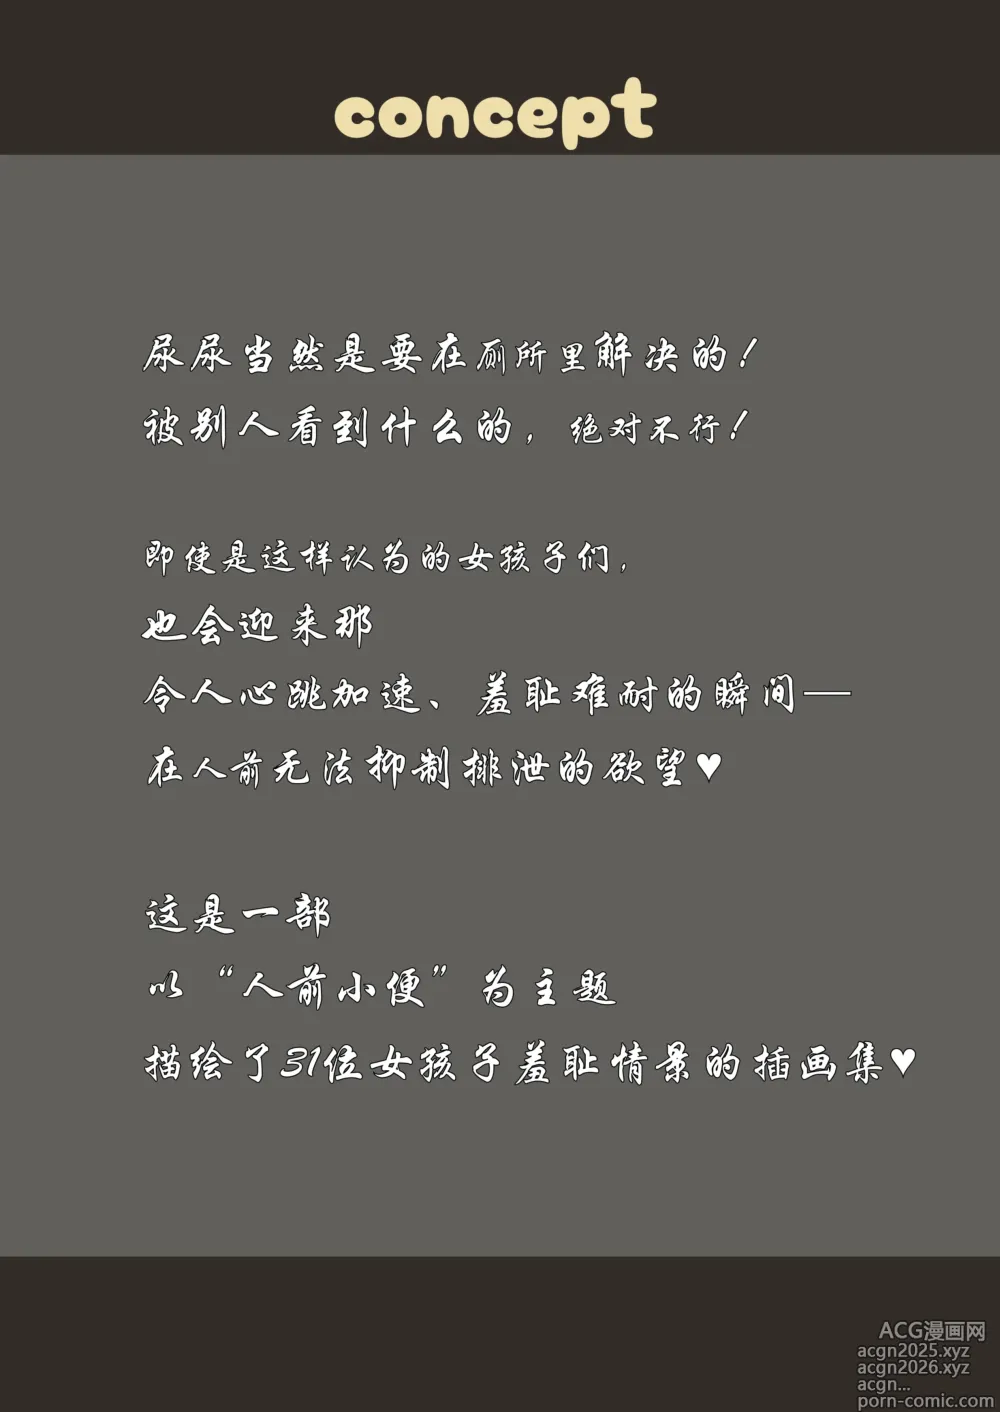 concept
尿尿当然是要在厕所里解决的！
被别人看到什么的，绝对不行！
即使是这样认为的女孩子们，
也会迎来那
令人心跳加速、羞耻难耐的瞬间—
在人前无法抑制排泄的欲望♥
这是一部
以“人前小便”为主题
描绘了31位女孩子羞耻情景的插画集♥
ACG漫画网
acgn2025.xyz
acgn2026.xyz
acgn...
porn-comic.com